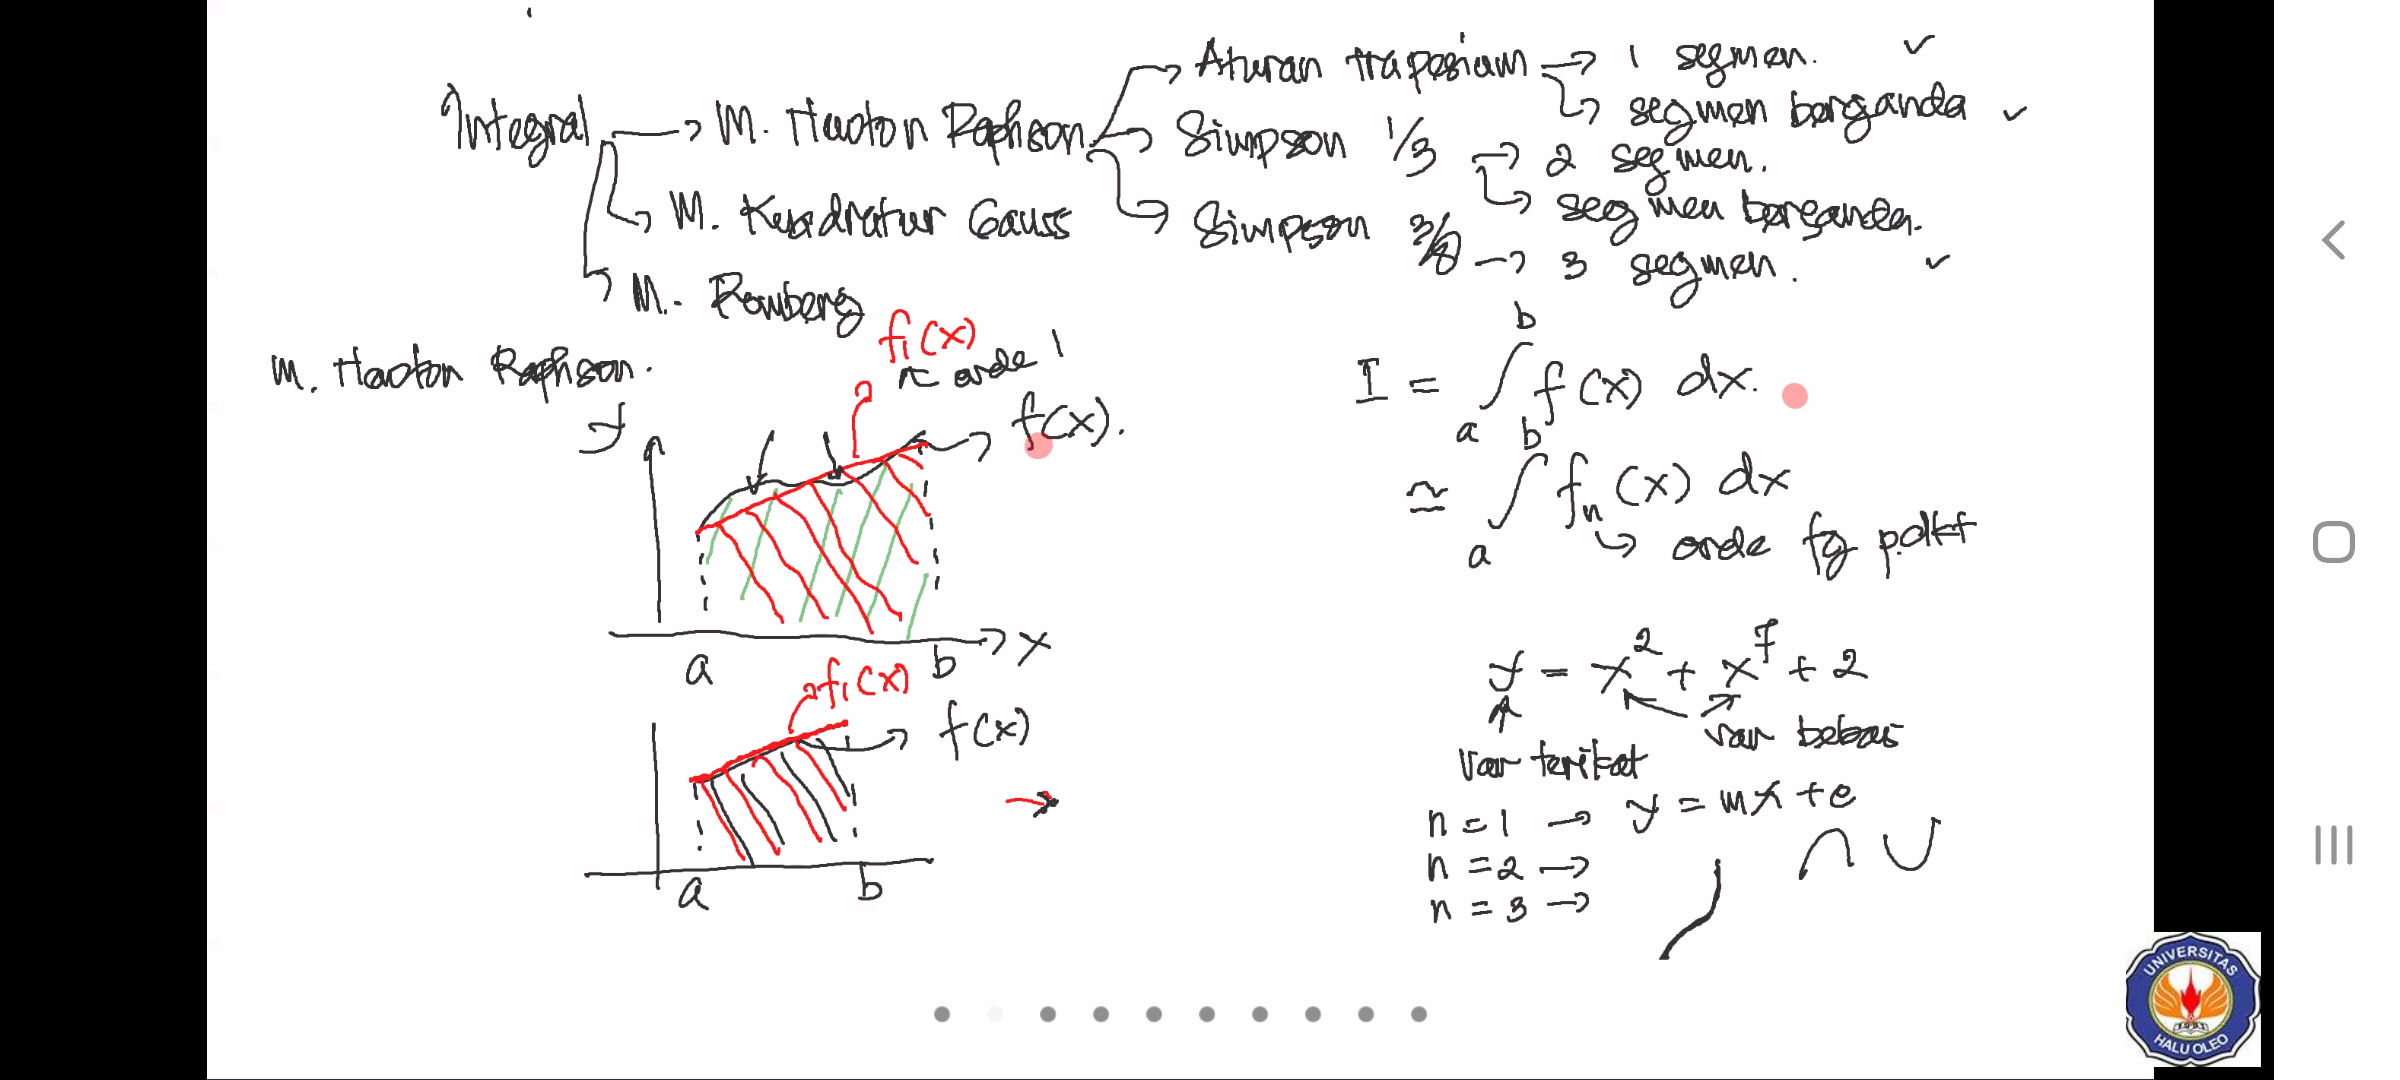 Integral → M. Newton Raphson → Aturan trapesium → 1 segmen. ✓
↳ segmen berganda ✓
→ Simpson 1/3 → 2 segmen.
↳ segmen berganda.
→ Simpson 3/8 → 3 segmen. ✓
→ M. Kuadratur Gauss
→ M. Romberg
M. Newton Raphson.
f₁(x)
orde 1
y
f(x).
a
b
x
f₁(x)
f(x)
a
b
I = ∫ₐᵇ f(x) dx.
≅ ∫ₐᵇ fₙ(x) dx
↳ orde fg pdkt
y = x² + x⁷ + 2
var bebas
var terikat
n = 1 → y = mx + c
n = 2 →
n = 3 →
UNIVERSITAS
HALU OLEO